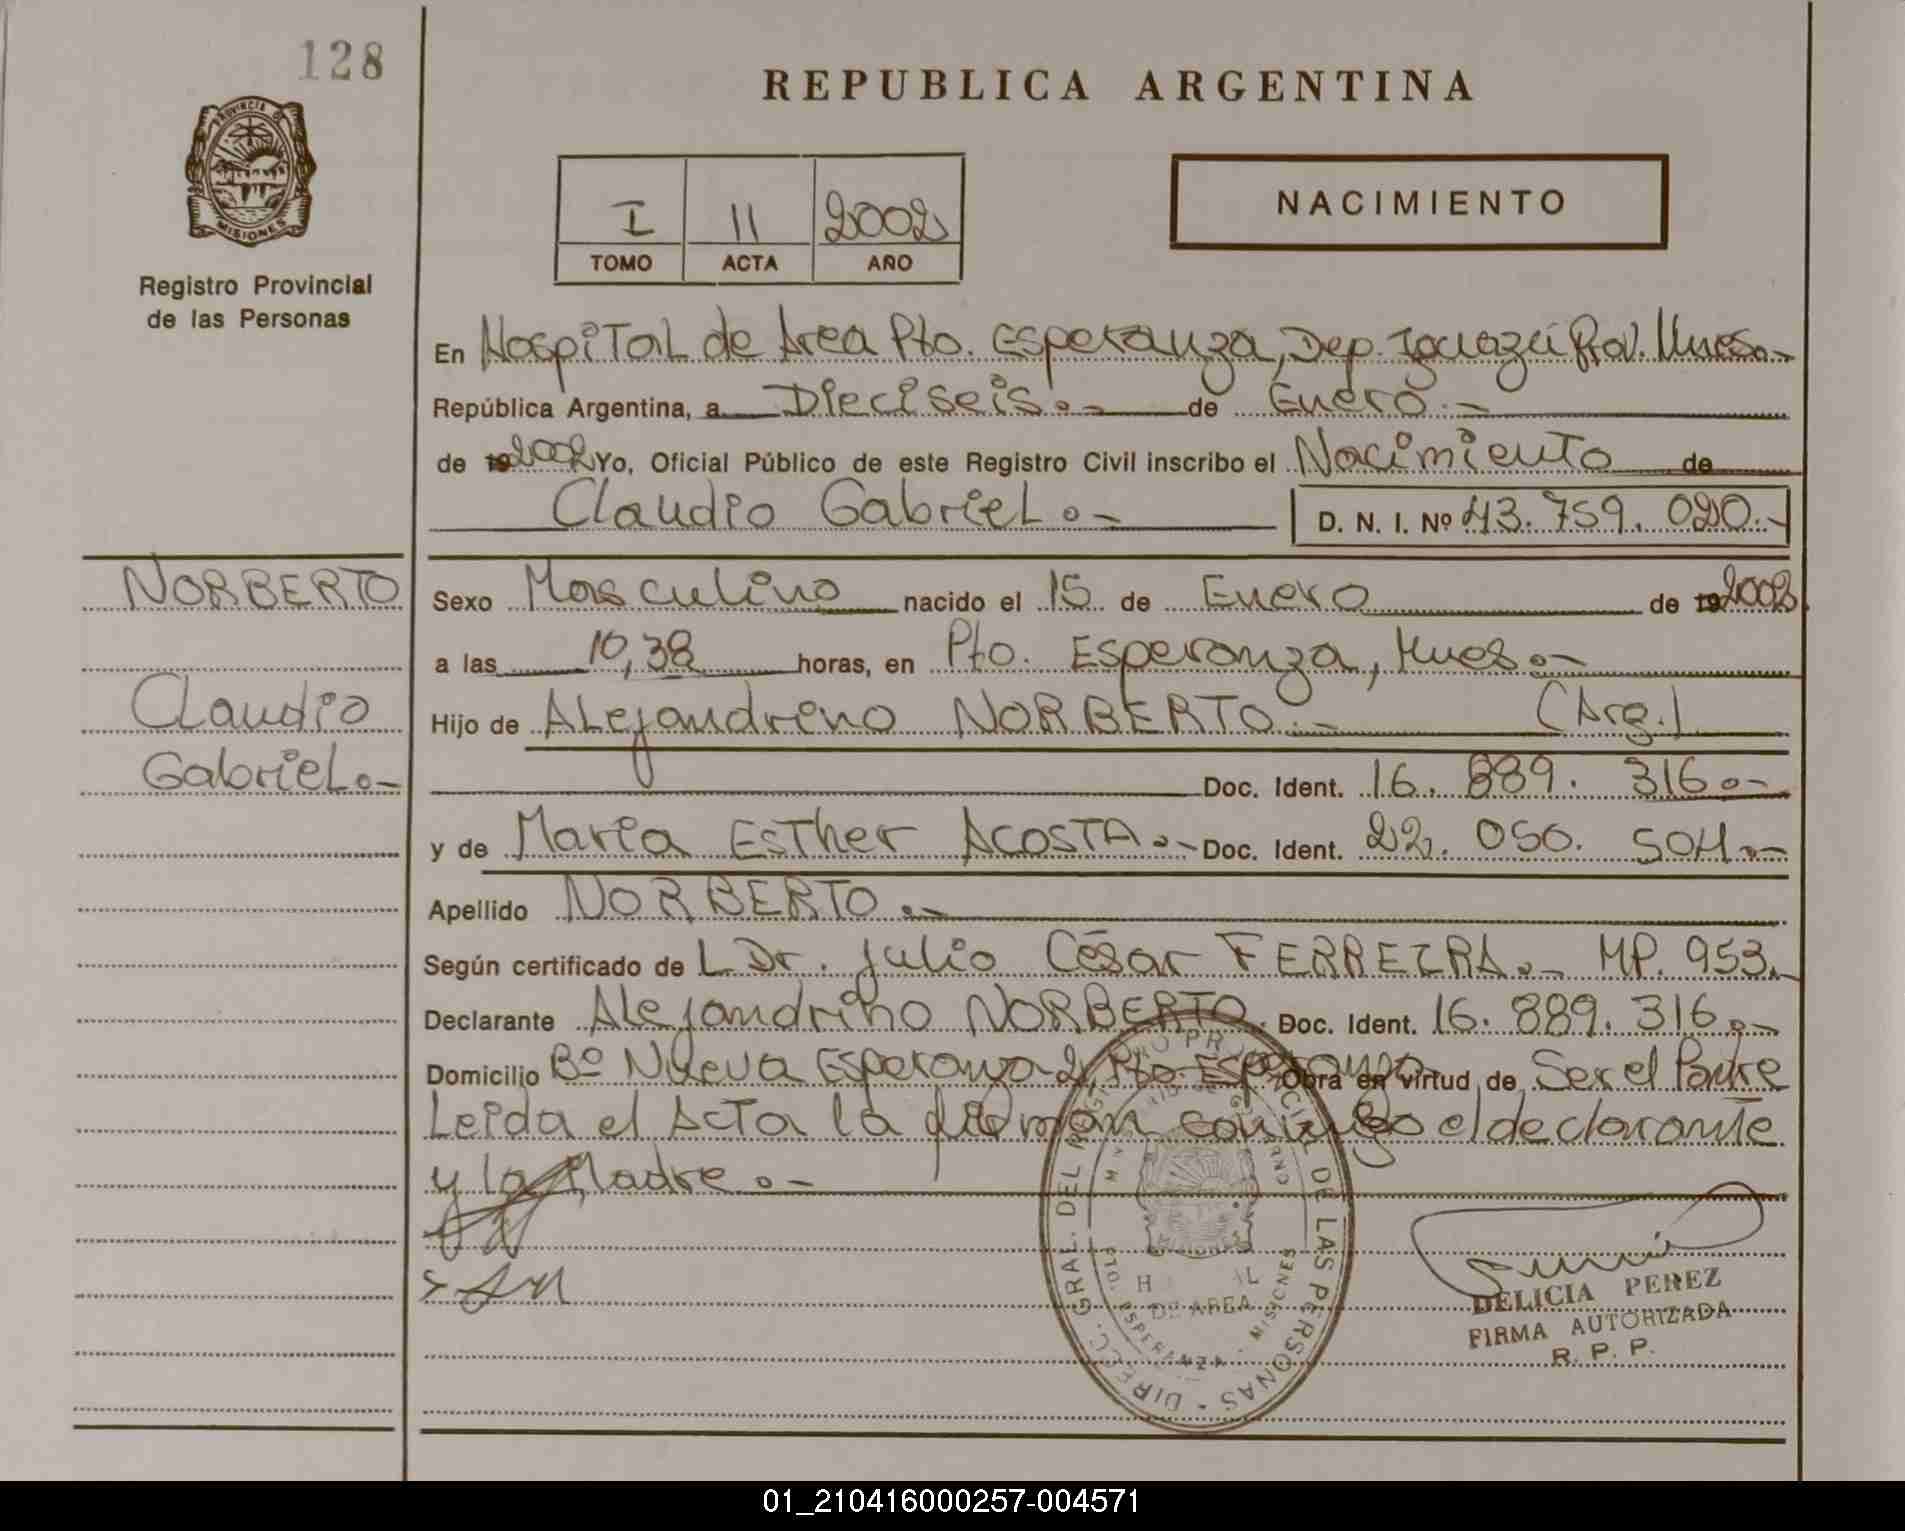 128
REPUBLICA ARGENTINA
PROVINCIA DE
MISIONES
Registro Provincial
de las Personas
I 11 2002
TOMO ACTA AÑO
NACIMIENTO
En Hospital de Area Pto. Esperanza, Dep. Iguazú Prov. Mnes.-
República Argentina, a Dieciseis.- de Enero.-
de 19 2002 Yo, Oficial Público de este Registro Civil inscribo el Nacimiento de
Claudio Gabriel.- D. N. I. Nº 43.759.020.-
NORBERTO
Claudio
Gabriel.-
Sexo Masculino nacido el 15 de Enero de 19 2002
a las 10,38 horas, en Pto. Esperanza, Mnes.-
Hijo de Alejandrino NORBERTO.- (Arg.)
Doc. Ident. 16.889.316.-
y de Maria Esther ACOSTA.- Doc. Ident. 22.050.504.-
Apellido NORBERTO.-
Según certificado de L Dr. Julio César FERREIRA.- MP. 953.-
Declarante Alejandrino NORBERTO. Doc. Ident. 16.889.316.-
Domicilio Bº Nueva Esperanza 2, Pto. Esperanza Obra en virtud de Ser el Padre
Leida el Acta la firman conmigo el declarante
y la Madre.-
DIRECC. GRAL. DEL REGISTRO PROVINCIAL DE LAS PERSONAS
MINISTERIO DE GOBIERNO
MISIONES
DE AREA
PTO. ESPERANZA - MISIONES
DELICIA PEREZ
FIRMA AUTORIZADA
R. P. P.
01_210416000257-004571